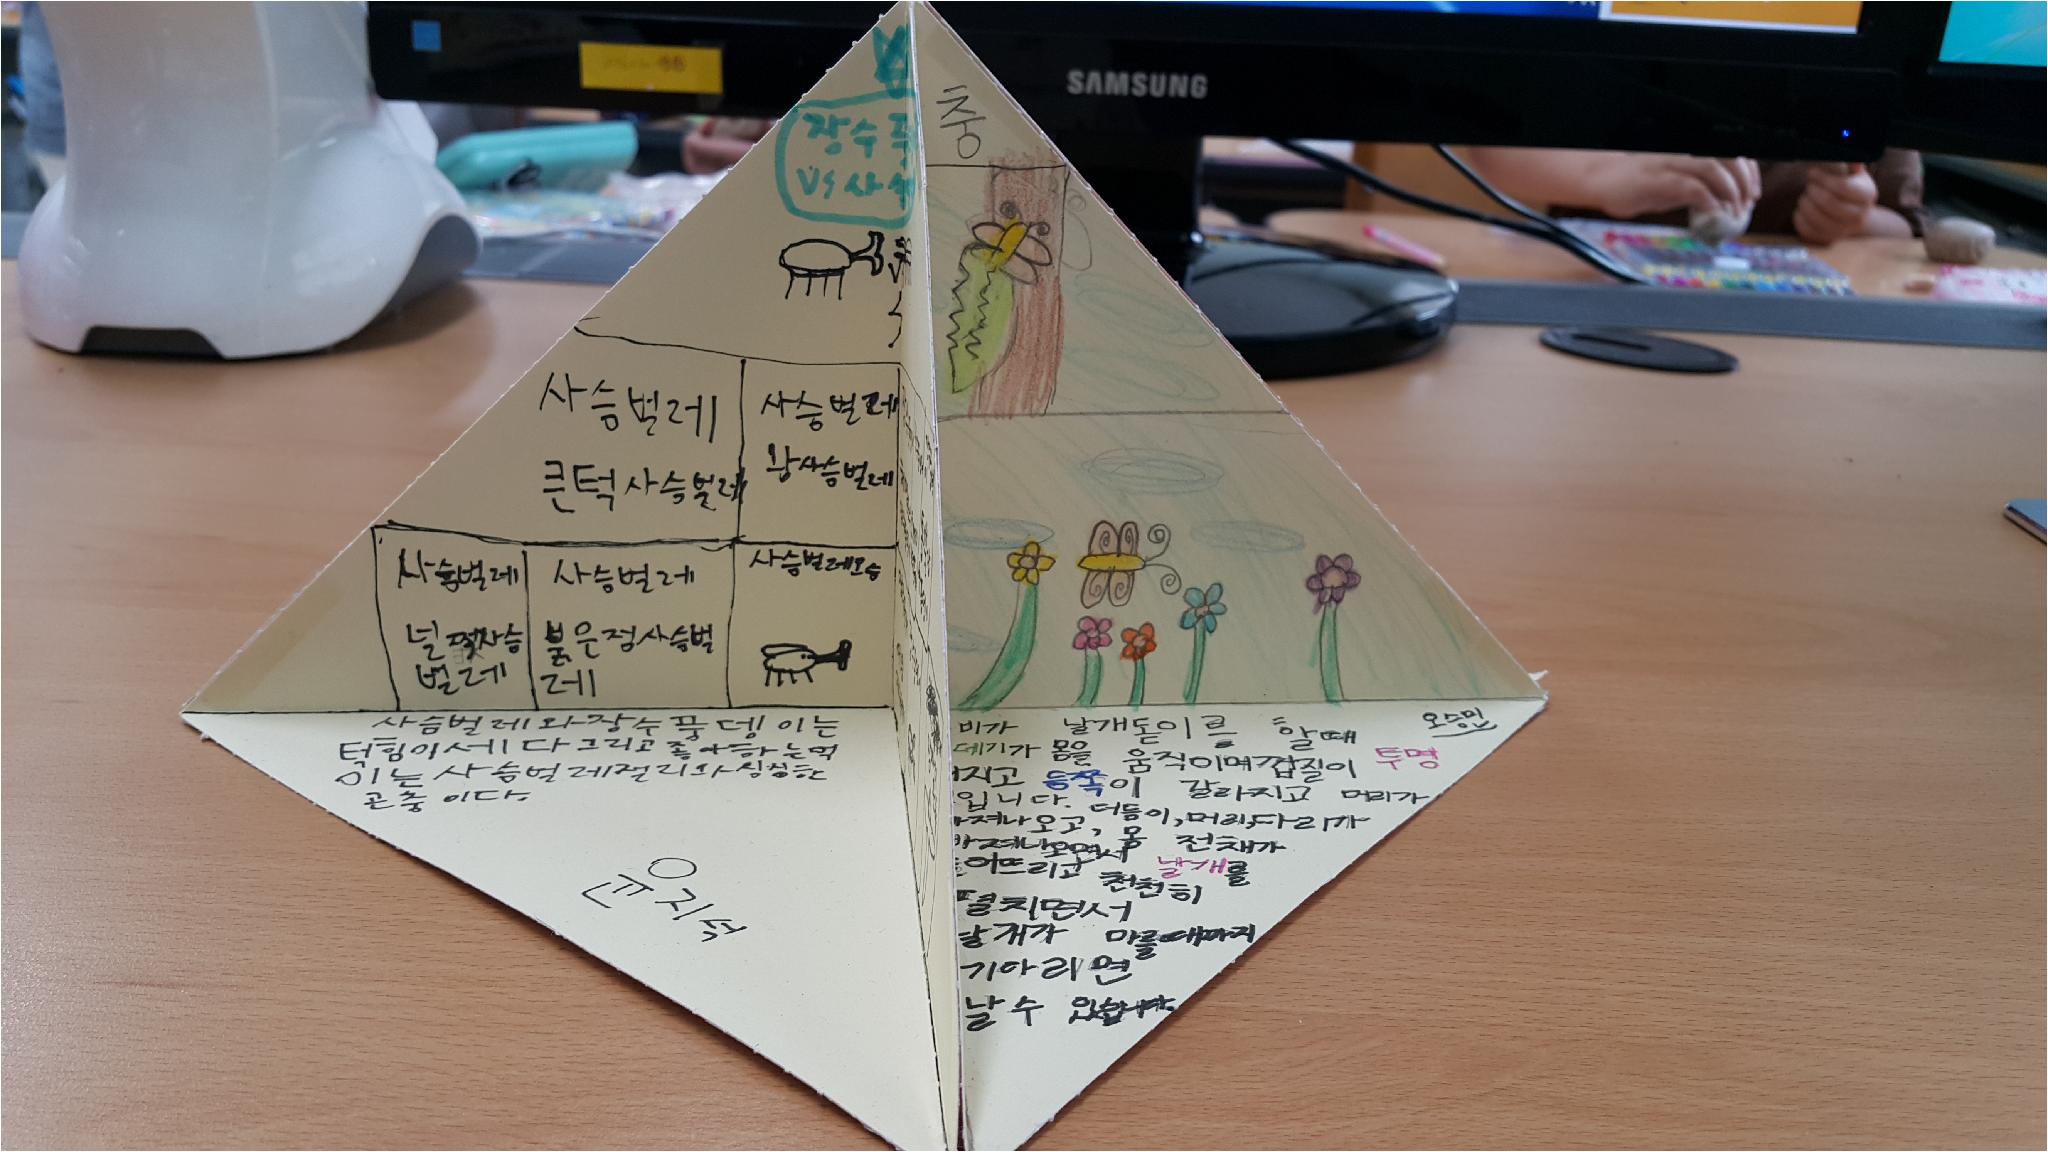 SAMSUNG
장수풍
VS 사슴
충
사슴벌레
큰턱사슴벌레
사슴벌레
왕사슴벌레
사슴벌레
넓적사슴
벌레
사슴벌레
붉은점사슴벌
레
사슴벌레모습
사슴벌레와장수풍뎅이는
턱힘이세다그리고좋아하는먹
이는사슴벌레젤리와싱싱한
곤충이다.
윤지석
오승민
비가 날개돋이를 할때
데기가 몸을 움직이며껍질이 투명
지고 등쪽이 갈라지고 머리가
입니다. 더듬이,머리,다리가
져나오고, 몸 전채가
져나오면서
어뜨리고 날개를
천천히
펼치면서
날개가 마를때까지
기다리면
날수 있습니다.